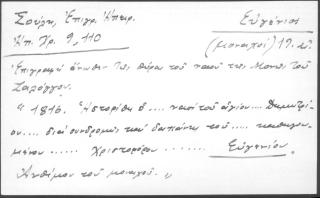 Σούλη, Ἐπιγρ. Ἠπειρ. Εὐγένιος
Ἠπ. Χρ. 9, 110 (μοναχοί) 19. αἰ.
Ἐπιγραφὴ ἄνωθεν τῆς θύρας τοῦ ναοῦ τῆς Μονῆς τοῦ
Ζαλόγγου.
"1816. Ἱστορίθη ὁ .... ναὸς τοῦ ἁγίου .... Δημητρί-
ου .... διὰ συνδρομῆς καὶ δαπάνης τοῦ ..... καθηγου-
μένου ..... Χριστοφόρου ....... Εὐγενίου
Ἀνθίμου τοῦ μοναχοῦ. "